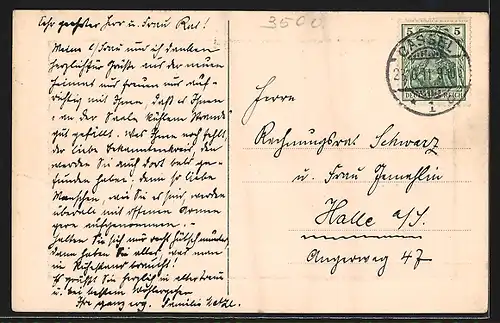 Sehr geehrter Herr u. Frau Rat!
Meine l. Frau und ich danken
herzlichst für Grüße aus der neuen
Heimat und freuen uns auf-
richtig mit Ihnen, daß es Ihnen
"an der Saale kühlem Strande"
gut gefällt. Was Ihnen noch fehlt,
der liebe Bekanntenkreis, den
werden Sie auch dort bald ge-
funden haben; denn so liebe
Menschen, wie Sie es sind, werden
überall mit offenen Armen
gern aufgenommen. -
Halten Sie sich nur recht hübsch munter,
dann haben Sie alles, was man
im Ruhestand braucht!
Es grüßt Sie herzlich in alter treu
u. bei bestem Wohlergehen
Ihr ganz erg. Familie
3500
5 5
CASSEL
1
DEUTSCHES REICH
Herrn
Rechnungsrat Schwarz
u. Frau Gemahlin
Halle a/S.
Angerweg 47